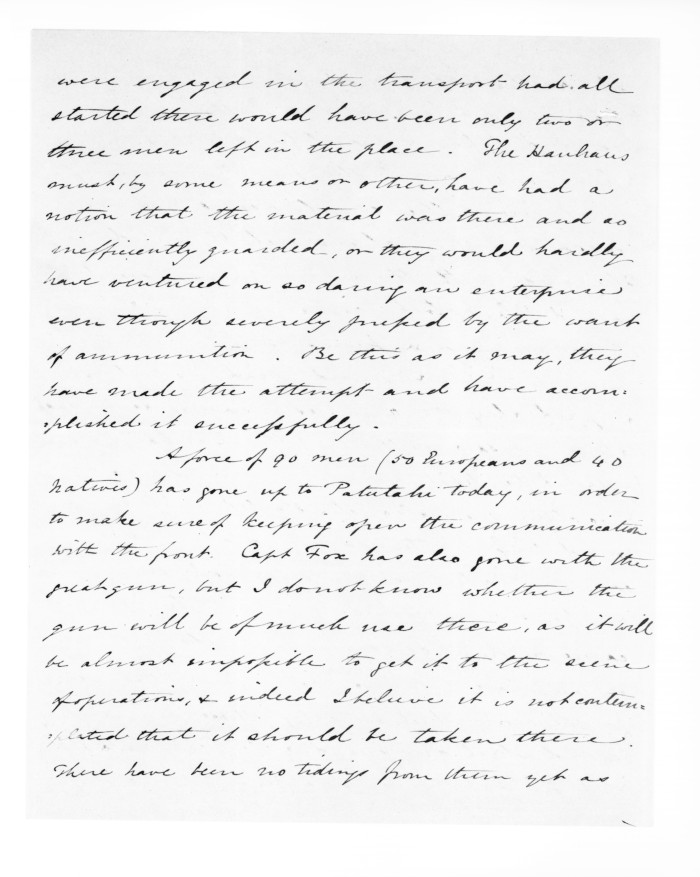 were engaged in the transport had all
started there would have been only two or
three men left in the place. The Hauhaus
must, by some means or other, have had a
notion that the material was there and so
inefficiently guarded, or they would hardly
have ventured on so daring an enterprise
even though severely pressed by the want
of ammunition. Be this as it may, they
have made the attempt and have accom=
=plished it successfully.
A force of 90 men (50 Europeans and 40
natives) has gone up to Patutahi today, in order
to make sure of keeping open the communication
with the front. Capt Fox has also gone with the
great gun, but I do not know whether the
gun will be of much use there, as it will
be almost impossible to get it to the scene
of operations, & indeed I believe it is not contem=
=plated that it should be taken there.
There have been no tidings from them yet as